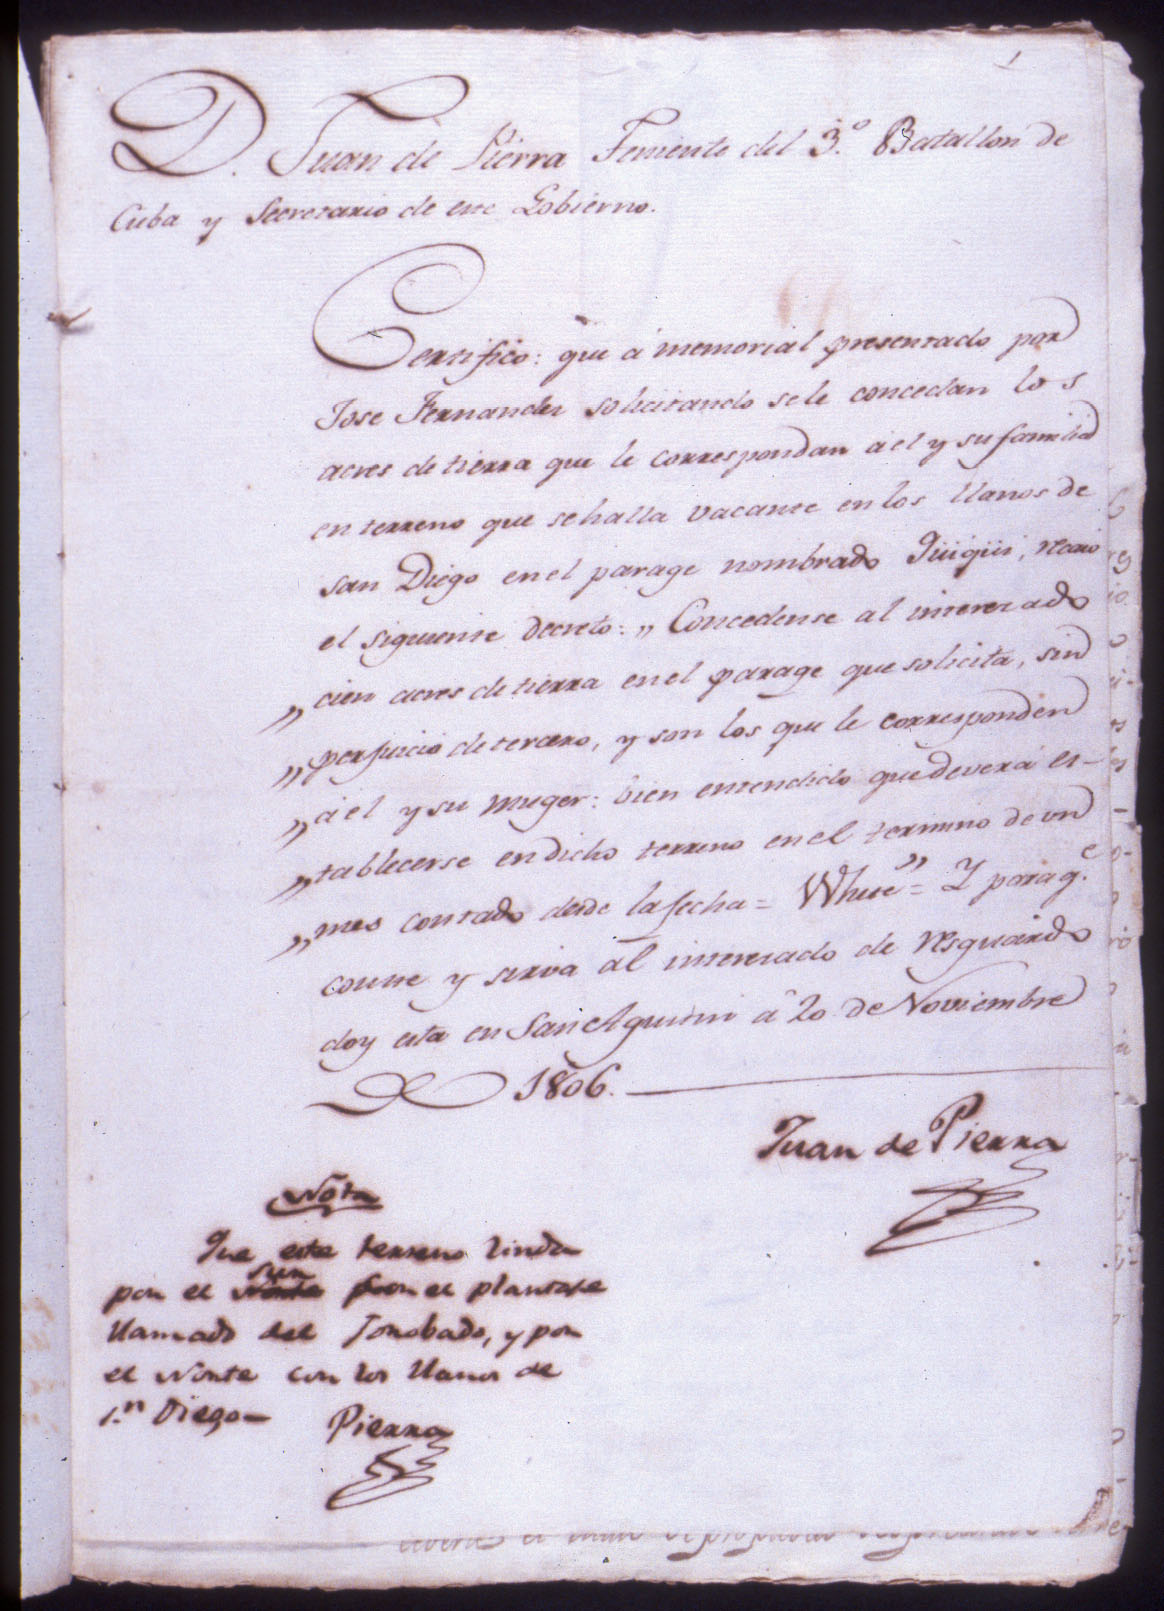 1
D. Juan de Pierra Teniente del 3.º Batallon de
Cuba y Secretario de este Gobierno.
Certifico: que á memorial presentado por
Jose Fernandez solicitando sele concedan los
acres de tierra que le correspondan á el y su familia
en terreno que sehalla vacante en los llanos de
san Diego en el parage nombrado Güigüi, recaio
el siguiente decreto: „ Concedense al interezado
„ cien acres de tierra en el parage que solicita, sin
„ perjuicio de tercero, y son los que le corresponden
„ á el y su muger: bien entendido que deverá es-
„ tablecerse en dicho terreno en el termino de un
„ mes contado desde la fecha = White” = Y para q.e
conste y sirva al interezado de resguardo
doy esta en San Agustin á 20 de Noviembre
de 1806.
Juan de Pierra
Nota
Que este terreno linda
sur
por el con el plantage
llamado del Jorobado, y por
el Norte con los llanos de
S.n Diego— Pierra